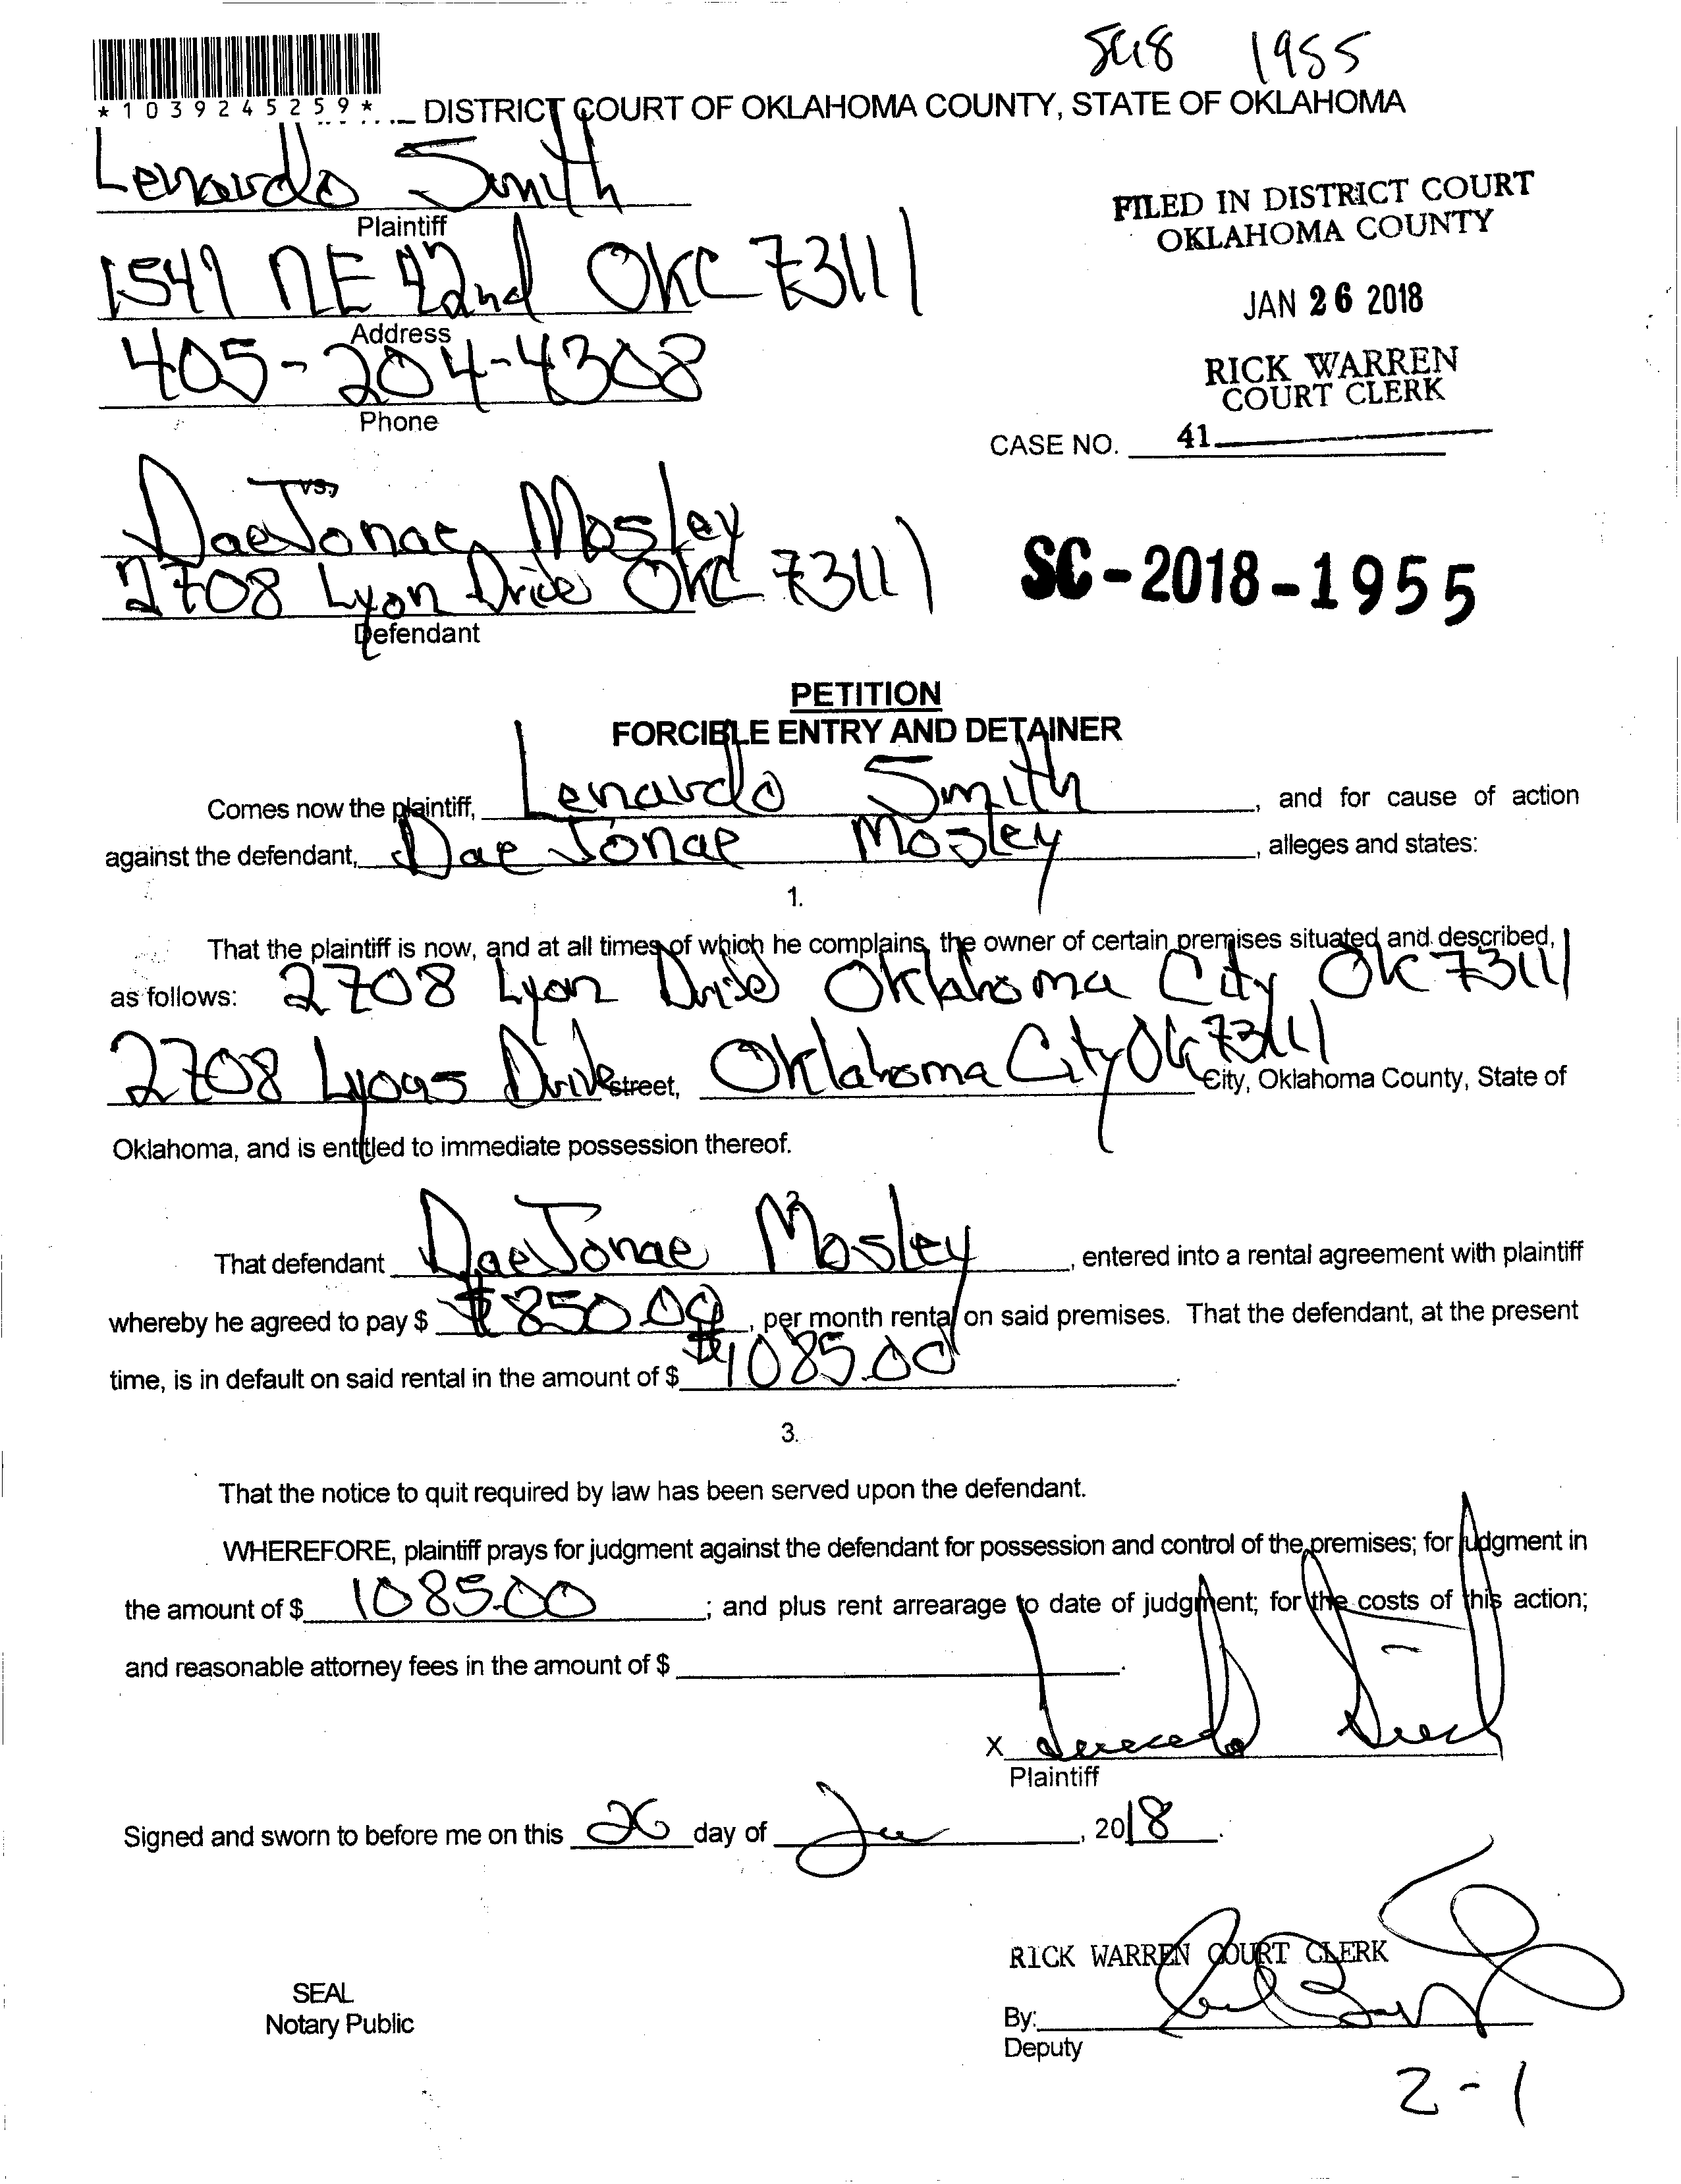 SC18 1955
*1039245259*
DISTRICT COURT OF OKLAHOMA COUNTY, STATE OF OKLAHOMA
Lenardo Smith
Plaintiff
FILED IN DISTRICT COURT
OKLAHOMA COUNTY
1541 NE 42nd OKC 73111
Address
JAN 26 2018
405-204-4308
Phone
RICK WARREN
COURT CLERK
CASE NO. 41
vs.
DaeJonae Mosley
2708 Lyon Drive OKC 73111
Defendant
SC-2018-1955
PETITION
FORCIBLE ENTRY AND DETAINER
Comes now the plaintiff, Lenardo Smith, and for cause of action
against the defendant, Dae Jonae Mosley, alleges and states:
1.
That the plaintiff is now, and at all times of which he complains, the owner of certain premises situated and described,
as follows: 2708 Lyon Drive Oklahoma City OK 73111
2708 Lyons Drive street, Oklahoma City OK 73111 City, Oklahoma County, State of
Oklahoma, and is entitled to immediate possession thereof.
2
That defendant DaeJonae Mosley, entered into a rental agreement with plaintiff
whereby he agreed to pay $ $850.00, per month rental on said premises. That the defendant, at the present
time, is in default on said rental in the amount of $ $1085.00.
3.
That the notice to quit required by law has been served upon the defendant.
WHEREFORE, plaintiff prays for judgment against the defendant for possession and control of the premises; for judgment in
the amount of $ 1085.00; and plus rent arrearage to date of judgment; for the costs of this action;
and reasonable attorney fees in the amount of $ .
X Lenardo Smith
Plaintiff
Signed and sworn to before me on this 26 day of Jan, 2018.
RICK WARREN COURT CLERK
SEAL
Notary Public
By:
Deputy
2-1